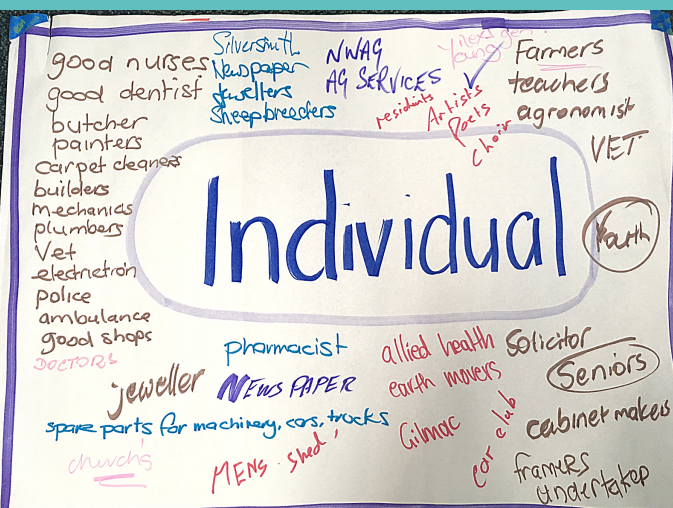 good nurses
good dentist
butcher
painters
carpet cleaners
builders
mechanics
plumbers
Vet
electnetron
police
ambulance
good shops
DOCTORS
Silversmith
Newspaper
Jewellers
Sheepbreeders
NWAG
AG SERVICES
residents
Artists
Poets
choir
next gen
young
Farmers
teachers
agronomist
VET
Individual
Youth
pharmacist
jeweller
NEWS PAPER
spare parts for machinery, cars, trucks
church's
MENS shed
allied health
earth movers
Gilmac
car club
Solicitor
Seniors
cabinet makers
framers
undertaker